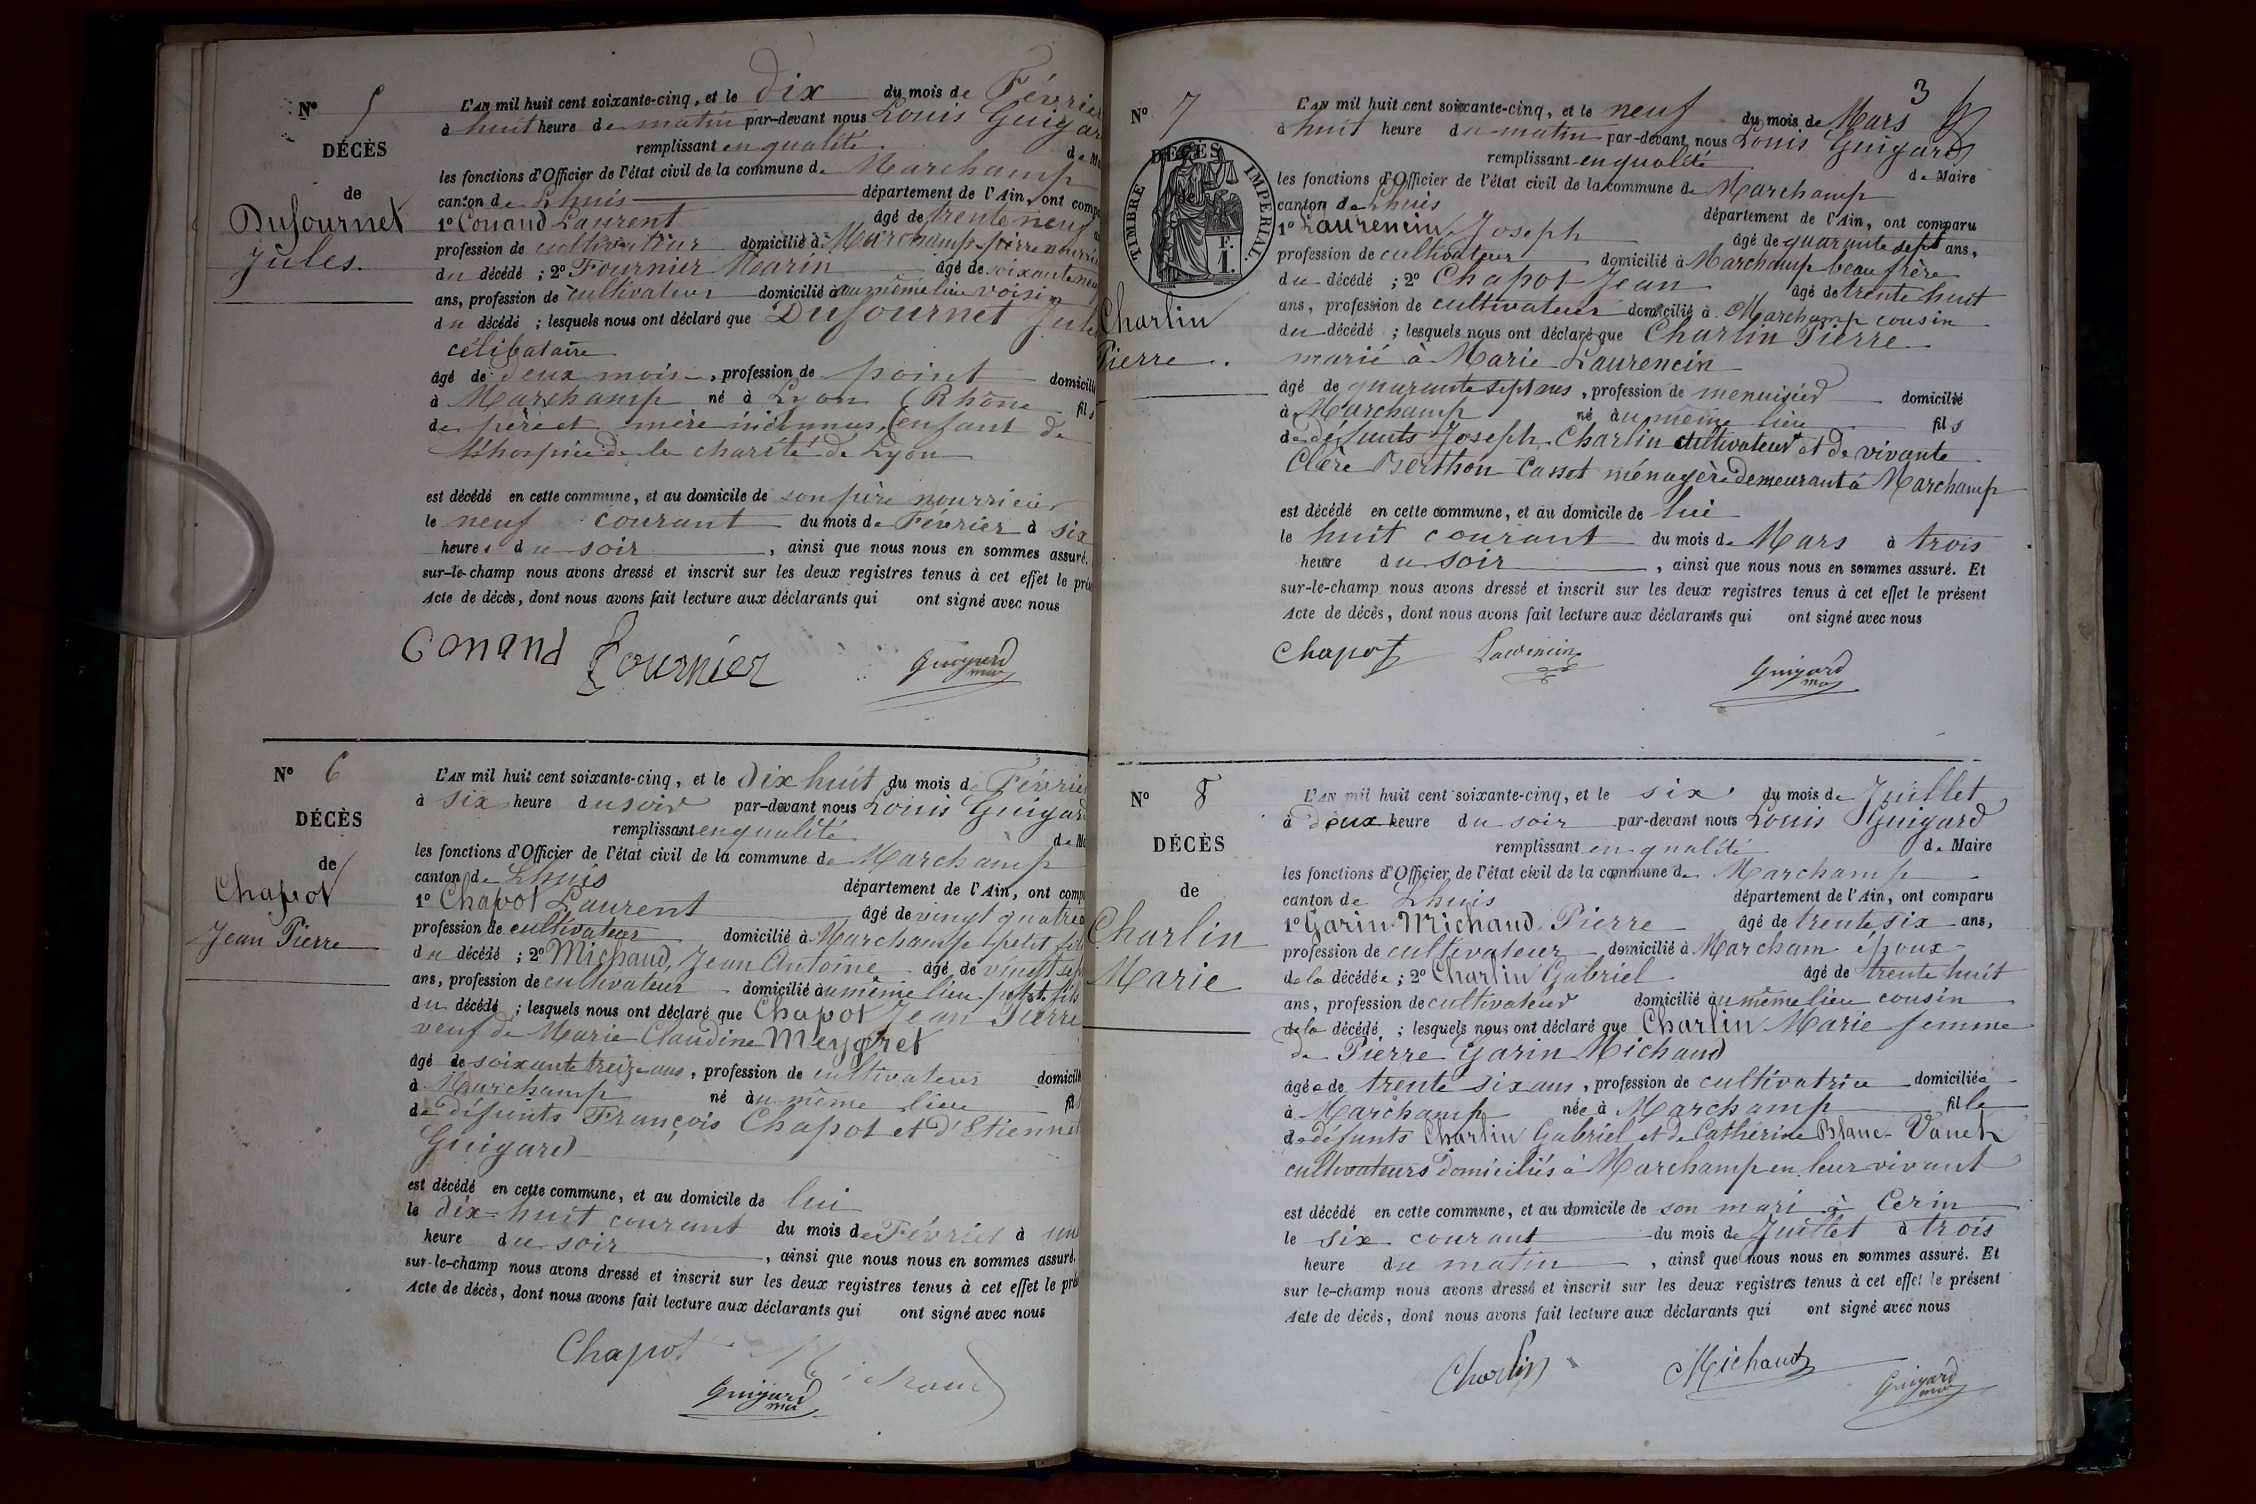 N° 5
DÉCÈS
de
Dufournet
Jules.
L'AN mil huit cent soixante-cinq, et le dix du mois de Février
à huit heure de matin par-devant nous Louis Guigar
remplissant en qualité de M
les fonctions d'Officier de l'état civil de la commune de Marchamp
canton de Lhuis département de l'Ain, ont comp
1° Conand Laurent âgé de trente neuf
profession de cultivateur domicilié à Marchamp père nourri
du décédé ; 2° Fournier Marin âgé de soixante neuf
ans, profession de cultivateur domicilié au même lieu voisin
du décédé ; lesquels nous ont déclaré que Dufournet Jule
célibataire
âgé de deux mois, profession de point domicilié
à Marchamp né à Lyon (Rhône fils
de père et mère inconnus, (enfant de
l'hospice de la charité de Lyon
est décédé en cette commune, et au domicile de son père nourricier
le neuf courant du mois de Février à six
heures du soir, ainsi que nous nous en sommes assuré.
sur-le-champ nous avons dressé et inscrit sur les deux registres tenus à cet effet le prés
Acte de décès, dont nous avons fait lecture aux déclarants qui ont signé avec nous
Conand Fournier Guigard
N° 6
DÉCÈS
de
Chapot
Jean Pierre
L'AN mil huit cent soixante-cinq, et le dix huit du mois de Févrie
à six heure du soir par-devant nous Louis Guigar
remplissant en qualité de M
les fonctions d'Officier de l'état civil de la commune de Marchamp
canton de Lhuis département de l'Ain, ont comp
1° Chapot Laurent âgé de vingt quatre
profession de cultivateur domicilié à Marchamp petit fils
du décédé ; 2° Michaud, Jean Antoine âgé de vingt sep
ans, profession de cultivateur domicilié au même lieu petit fils
du décédé ; lesquels nous ont déclaré que Chapot Jean Pierre
veuf de Marie Claudine Meygret
âgé de soixante treize ans, profession de cultivateur domicilié
à Marchamp né au même lieu fils
de défunts François Chapot et d'Etiennet
Guigard
est décédé en cette commune, et au domicile de lui
le dix-huit courant du mois de Février à une
heure du soir, ainsi que nous nous en sommes assuré.
sur-le-champ nous avons dressé et inscrit sur les deux registres tenus à cet effet le prés
Acte de décès, dont nous avons fait lecture aux déclarants qui ont signé avec nous
Chapot Michaud
Guigard
3
N° 7
DÉCÈS
de
TIMBRE IMPÉRIAL.
F.
1.
Charlin
Pierre.
L'AN mil huit cent soixante-cinq, et le neuf du mois de Mars
à huit heure du matin par-devant nous Louis Guigard
remplissant en qualité de Maire
les fonctions d'Officier de l'état civil de la commune de Marchamp
canton de Lhuis département de l'Ain, ont comparu
1° Laurencin Joseph âgé de quarante sept ans,
profession de cultivateur domicilié à Marchamp beau frère
du décédé ; 2° Chapot Jean âgé de trente huit
ans, profession de cultivateur domicilié à Marchamp cousin
du décédé ; lesquels nous ont déclaré que Charlin Pierre
marié à Marie Laurencin
âgé de quarante sept ans, profession de menuisier domicilié
à Marchamp né au même lieu fils
de défunts Joseph Charlin cultivateur et de vivante
Clère Berthon Casset ménagère demeurant à Marchamp
est décédé en cette commune, et au domicile de lui
le huit courant du mois de Mars à trois
heure du soir, ainsi que nous nous en sommes assuré. Et
sur-le-champ nous avons dressé et inscrit sur les deux registres tenus à cet effet le présent
Acte de décès, dont nous avons fait lecture aux déclarants qui ont signé avec nous
Chapot Laurencin Guigard
N° 8
DÉCÈS
de
Charlin
Marie
L'AN mil huit cent soixante-cinq, et le six du mois de Juillet
à deux heure du soir par-devant nous Louis Guigard
remplissant en qualité de Maire
les fonctions d'Officier de l'état civil de la commune de Marchamp
canton de Lhuis département de l'Ain, ont comparu
1° Garin-Michaud Pierre âgé de trente six ans,
profession de cultivateur domicilié à Marcham époux
de la décédée ; 2° Charlin Gabriel âgé de trente huit
ans, profession de cultivateur domicilié au même lieu cousin
de la décédé ; lesquels nous ont déclaré que Charlin Marie femme
de Pierre Garin Michaud
âgée de trente six ans, profession de cultivatrice domiciliée
à Marchamp née à Marchamp fille
de défunts Charlin Gabriel et de Catherine Blanc-Vanet
cultivateurs domiciliés à Marchamp en leur vivant
est décédé en cette commune, et au domicile de son mari à Cerin
le six courant du mois de Juillet à trois
heure du matin, ainsi que nous nous en sommes assuré. Et
sur le-champ nous avons dressé et inscrit sur les deux registres tenus à cet effet le présent
Acte de décès, dont nous avons fait lecture aux déclarants qui ont signé avec nous
Charlin Michaud Guigard